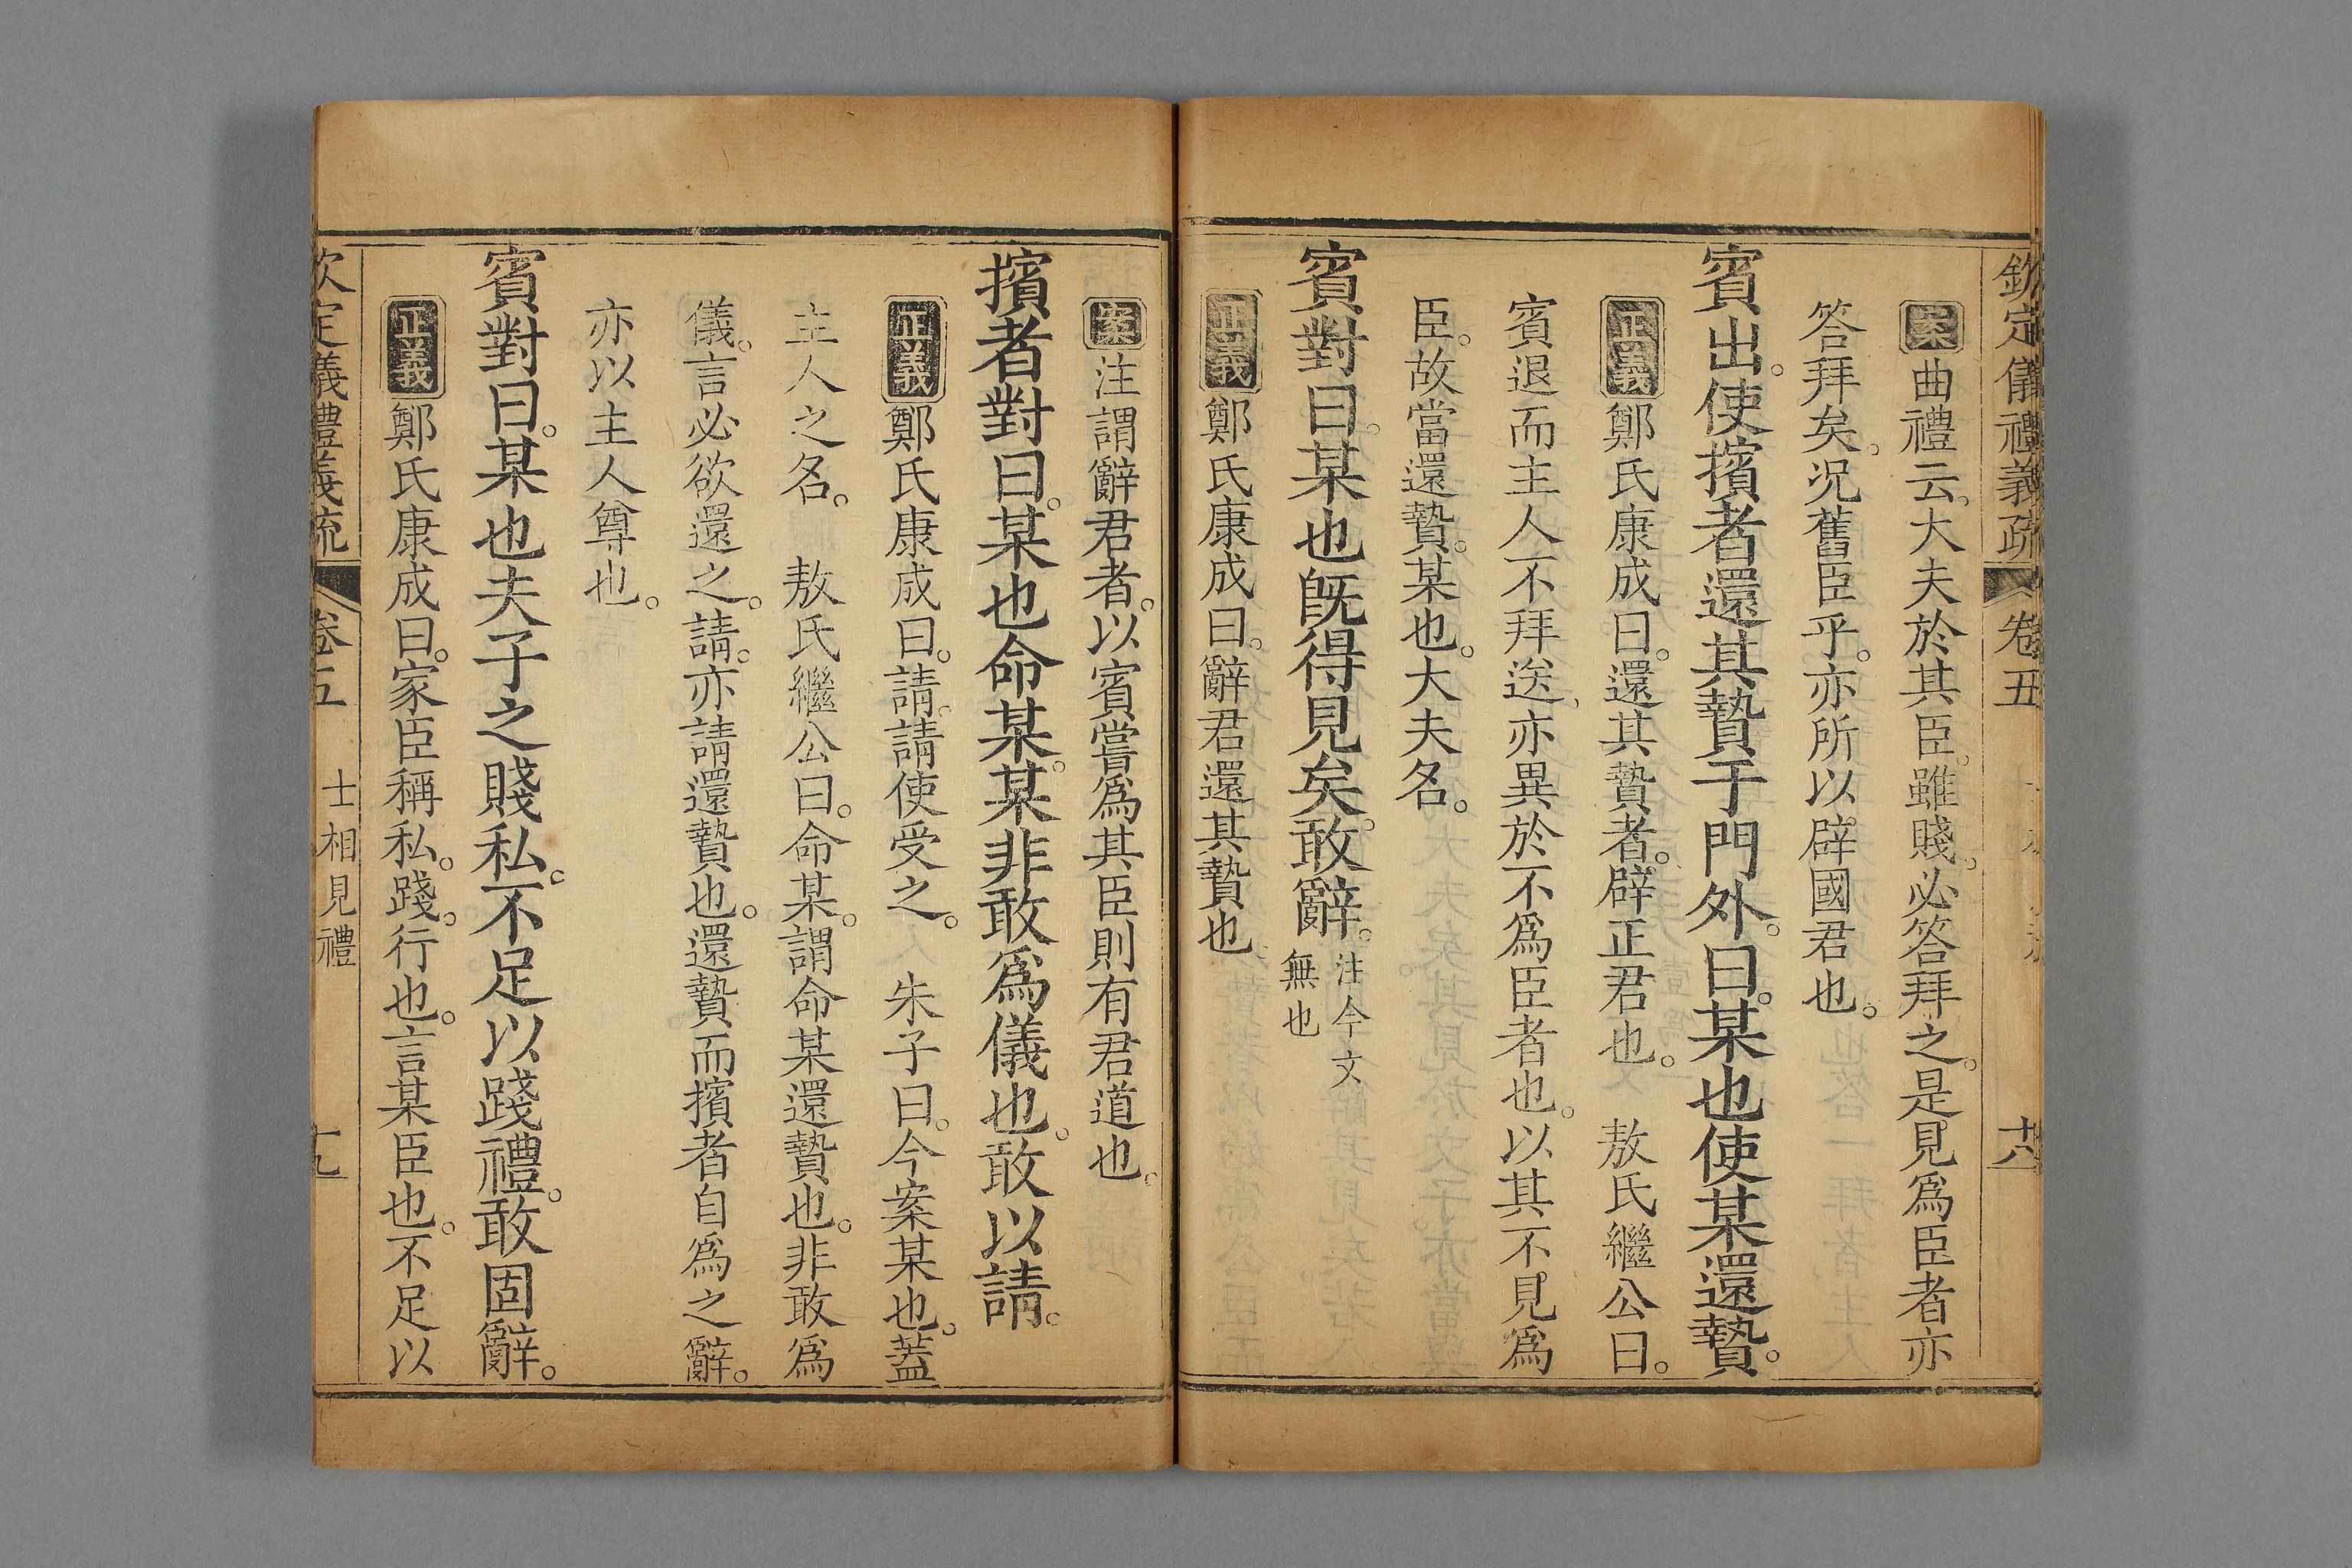 欽定儀禮義疏 卷五 十八
案曲禮云。大夫於其臣。雖賤。必答拜之。是見爲臣者亦
答拜矣。況舊臣乎。亦所以辟國君也。
賓出。使擯者還其贄于門外。曰。某也使某還贄。
正義鄭氏康成曰。還其贄者。辟正君也。 敖氏繼公曰。
賓退而主人不拜送、亦異於不爲臣者也。以其不見爲
臣。故當還贄。某也。大夫名。
賓對曰。某也既得見矣。敢辭。注今文無也
正義鄭氏康成曰。辭君還其贄也。
案注謂辭君者。以賓嘗爲其臣則有君道也。
擯者對曰。某也命某。某非敢爲儀也。敢以請。
正義鄭氏康成曰。請。請使受之。 朱子曰。今案某也。蓋
主人之名。 敖氏繼公曰。命某。謂命某還贄也。非敢爲
儀。言必欲還之。請。亦請還贄也。還贄而擯者自爲之辭。
亦以主人尊也。
賓對曰。某也夫子之賤私。不足以踐禮。敢固辭。
正義鄭氏康成曰。家臣稱私。踐。行也。言某臣也。不足以
欽定儀禮義疏 卷五 士相見禮 十九